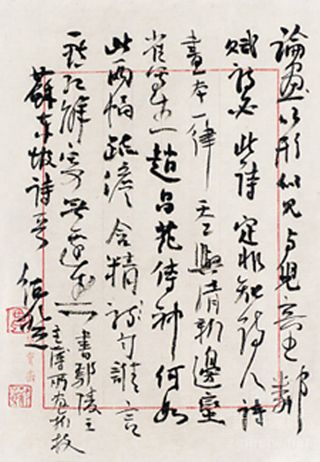 論畫以形似見与兒童鄰
賦詩必此詩定非知詩人詩
畫本一律天工與清新邊鸞
雀寫生趙昌花傳神何如
此兩幅疏澹含精匀誰言一
點紅解寄無邊春書鄢陵王
主簿所畫折枝
蘇東坡詩意